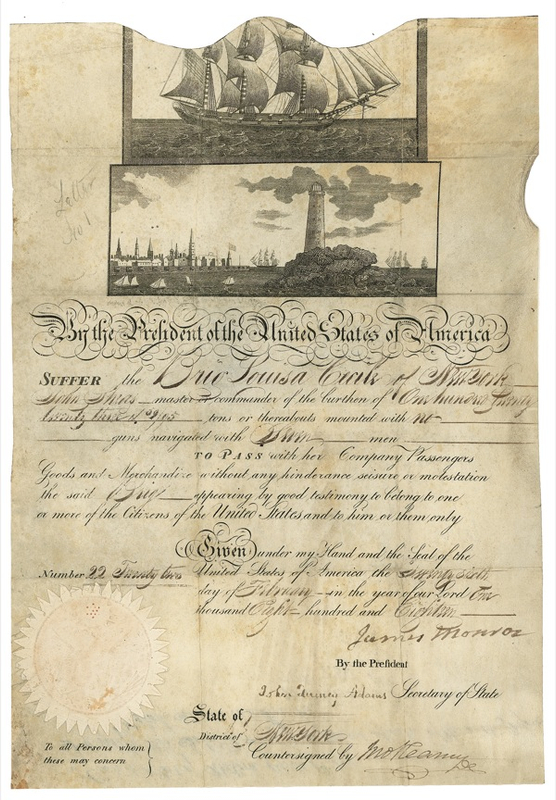 Letter
No 1
By the President of the United States of America
SUFFER the Brig Louisa Cecile of New York
John master or commander of the burthen of One hundred twenty
twenty three /95 tons or thereabouts mounted with no
guns navigated with men
TO PASS with her Company Passengers
Goods and Merchandize without any hinderance seisure or molestation
the said Brig appearing by good testimony to belong to one
or more of the Citizens of the United States and to him or them only
Given under my Hand and the Seal of the
Number 22 Twenty two United States of America the twenty sixth
day of February in the year of our Lord One
thousand Eight hundred and Eighteen
James Monroe
By the President
John Quincy Adams Secretary of State
State of
District of New York
Countersigned by
To all Persons whom
these may concern